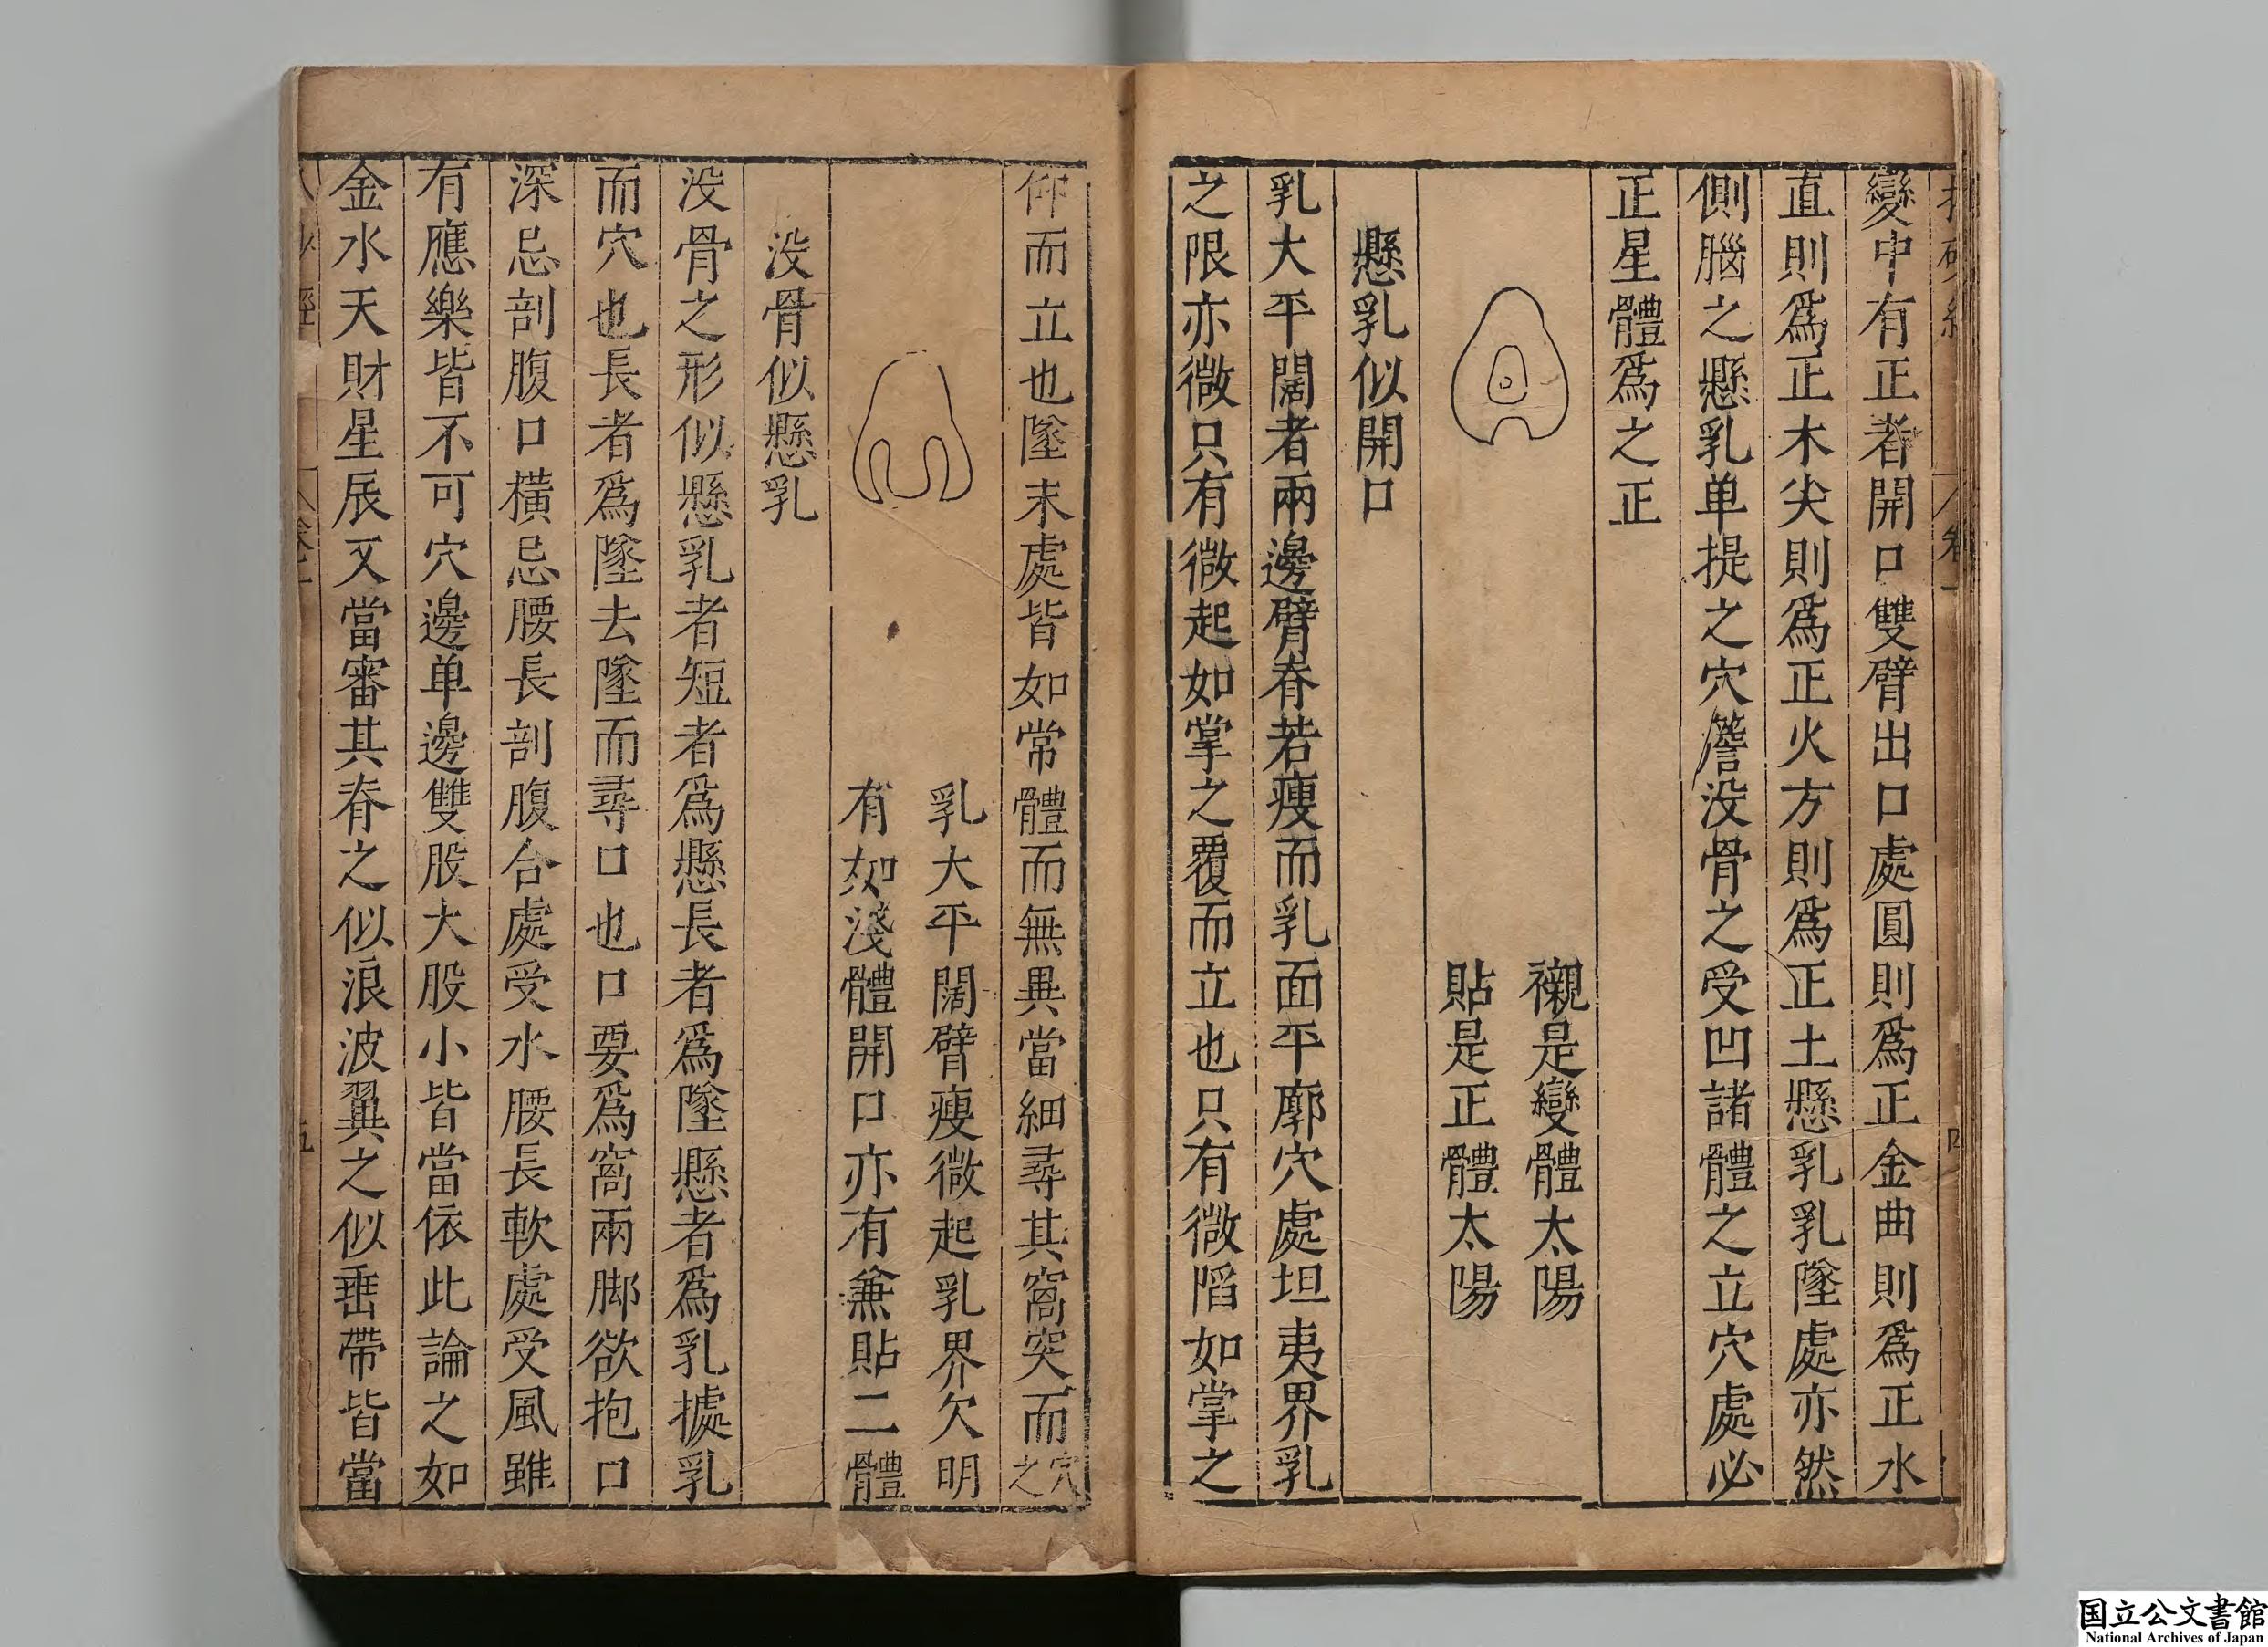 變中有正者開口雙臂出口處圓則爲正金曲則爲正水
直則爲正木尖則爲正火方則爲正土懸乳乳墜處亦然
側腦之懸乳单提之穴簷没骨之受凹諸體之立穴處必
正星體爲之正
襯是變體太陽
貼是正體太陽
懸乳似開口
乳大平闊者兩邊臂脊若瘦而乳面平廓穴處坦夷界乳
之限亦微只有微起如掌之覆而立也只有微陷如掌之
仰而立也墜末處皆如常體而無異當細尋其窩突而穴之
乳大平闊臂瘦微起乳界欠明
有如淺體開口亦有兼貼二體
没骨似懸乳
没骨之形似懸乳者短者爲懸長者爲墜懸者爲乳據乳
而穴也長者爲墜去墜而尋口也口要爲窩兩脚欲抱口
深忌剖腹口橫忌腰長剖腹合處受水腰長軟處受風雖
有應樂皆不可穴邊单邊雙股大股小皆當依此論之如
金水天財星辰又當審其脊之似浪波翼之似垂帶皆當
五
国立公文書館
National Archives of Japan